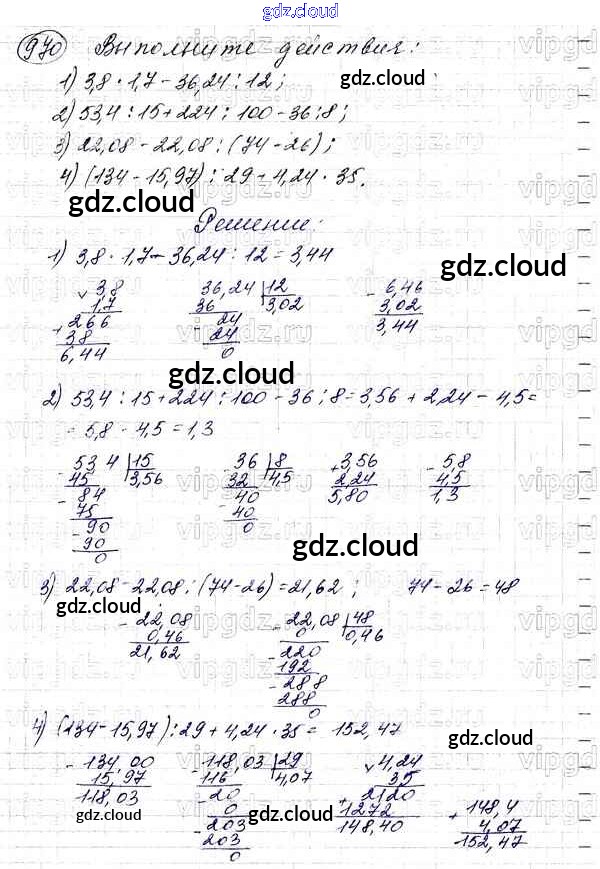 gdz.cloud
970 Выполните действия:
1) 3,8 · 1,7 - 36,24 : 12;
gdz.cloud
2) 53,4 : 15 + 224 : 100 - 36 : 8;
3) 22,08 - 22,08 : (74 - 26);
4) (134 - 15,97) : 29 + 4,24 · 35.
gdz.cloud
Решение:
1) 3,8 · 1,7 - 36,24 : 12 = 3,44
gdz.cloud
3,8 36,24 12 - 6,46
1,7 36 3,02 3,02
+ 266 24 3,44
38 - 24
6,44 0
gdz.cloud
2) 53,4 : 15 + 224 : 100 - 36 : 8 = 3,56 + 2,24 - 4,5 =
= 5,8 - 4,5 = 1,3
53 4 15 36 8 + 3,56 - 5,8
- 45 3,56 - 32 4,5 2,24 4,5
84 40 5,80 1,3
- 75 - 40
90 0
- 90
0
gdz.cloud
3) 22,08 - 22,08 : (74 - 26) = 21,62 ; 74 - 26 = 48
gdz.cloud
- 22,08 - 22,08 48
0,46 0 0,46
21,62 - 220
192
- 288
288
0
4) (134 - 15,97) : 29 + 4,24 · 35 = 152,47
gdz.cloud
- 134,00 - 118,03 29 4,24
15,97 116 4,07 35
118,03 - 20 + 2120
0 1272 + 148,4
- 203 148,40 4,07
203 152,47
0
gdz.cloud
gdz.cloud
gdz.cloud